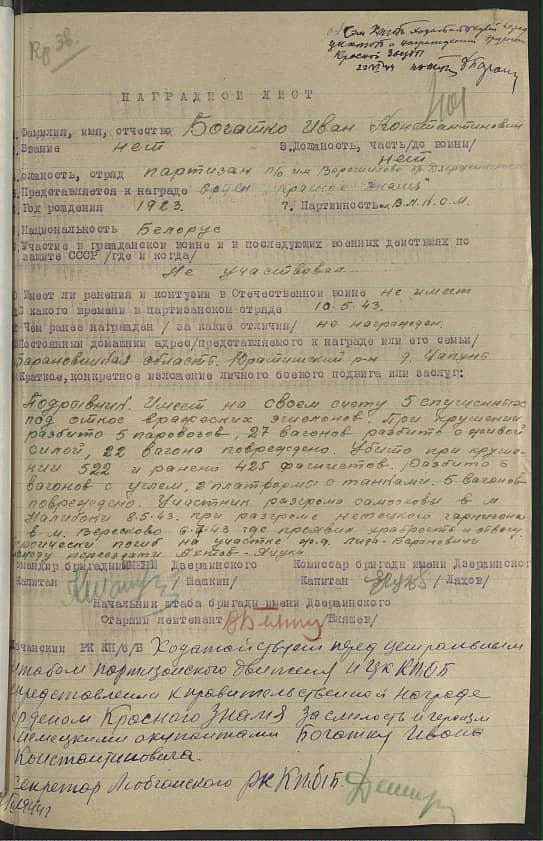 Кр Зв.
ЦК КП(б)Б о награждении орденом
Красной Звезды
НАГРАДНОЙ ЛИСТ
Фамилия, имя, отчество Богатко Иван Константинович
Звание нет 3. Должность, часть/до войны/
нет
должность, отряд партизан п/о им Ворошилова бр. Дзержинского
Представляется к награде орден "Красное Знамя"
Год рождения 1923. 7. Партийность чл В.Л.К.С.М.
Национальность Белорус
Участие в гражданской войне и в последующих военных действиях по
защите СССР /где и когда/
Не участвовал
Имеет ли ранения и контузии в Отечественной войне не имеет
С какого времени в партизанском отряде 10.5.43.
Чем ранее награжден / за какие отличия/ не награжден.
Постоянный домашний адрес/представляемого к награде или его семьи/
Барановицкая область. Юратишский р-н д. Чапунь
Краткое, конкретное изложение личного боевого подвига или заслуг:
Подрывник. Имеет на своем счету 5 спущенных
под откос вражеских эшелонов. При крушении
разбито 5 паровозов, 27 вагонов разбито с живой
силой, 22 вагона повреждено. Убито при круше-
нии 522 и ранено 425 фашистов. Разбито 6
вагонов с углем, 2 платформы с танками. 5 вагонов
повреждено. Участник разгрома самоховы в м.
Налибоки 8.5.43. при разгроме немецкого гарнизона
в м. Вересково 6.7.43 где проявил храбрость и отвагу.
героически погиб на участке ж.д. Лида-Барановичи
между переездами
Командир бригады ИМЕНИ Дзержинского Комиссар бригады имени Дзержинского
Капитан /Шашкин/ Капитан /Ляхов/
Начальник штаба бригады имени Дзержинского
Старший лейтенант /Бляшев/
РК КП/б/Б Ходатайствует перед центральным
штабом партизанского движения и ЦК КП(б)Б
представлении к правительственной награде
орденом Красного Знамя за смелость и героизм
немецкими оккупантами Богатку Ивана
Константиновича.
Секретарь Любчанского РК КП(б)Б.